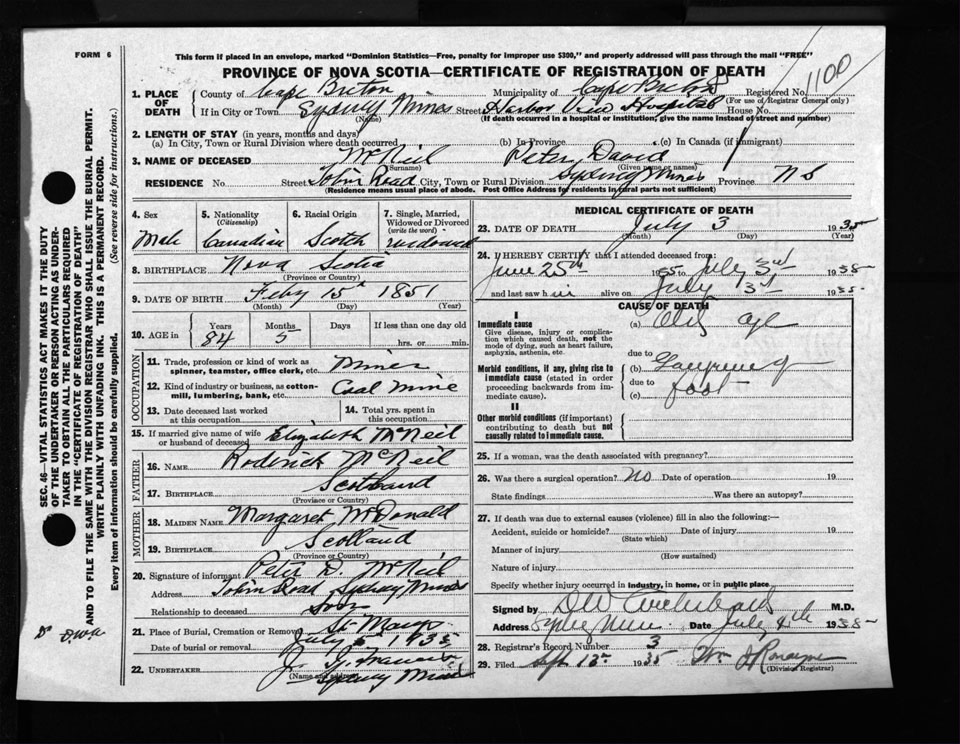 FORM 6
This form if placed in an envelope, marked "Dominion Statistics—Free, penalty for improper use $300," and properly addressed will pass through the mail "FREE"
PROVINCE OF NOVA SCOTIA—CERTIFICATE OF REGISTRATION OF DEATH
1100
1. PLACE OF DEATH
County of Cape Breton Municipality of Cape Breton Registered No.
(For use of Registrar General only)
If in City or Town Sydney Mines Street Harbor View Hospital House No.
(Name) (If death occurred in a hospital or institution, give the name instead of street and number)
2. LENGTH OF STAY (in years, months and days)
(a) In City, Town or Rural Division where death occurred (b) In Province (c) In Canada (if immigrant)
3. NAME OF DECEASED McNeil Peter David
(Surname) (Given name or names)
RESIDENCE No. Street Tobin Road City, Town or Rural Division Sydney Mines Province N S
(Residence means usual place of abode. Post Office Address for residents in rural parts not sufficient)
4. Sex
Male
5. Nationality
(Citizenship)
Canadian
6. Racial Origin
Scotch
7. Single, Married, Widowed or Divorced
(write the word)
widowed
8. BIRTHPLACE Nova Scotia
(Province or Country)
9. DATE OF BIRTH Feby 15th 1851
(Month) (Day) (Year)
10. AGE in
Years Months Days If less than one day
84 5 hrs. or min.
OCCUPATION
11. Trade, profession or kind of work as spinner, teamster, office clerk, etc. Miner
12. Kind of industry or business, as cotton-mill, lumbering, bank, etc. Coal Mine
13. Date deceased last worked at this occupation
14. Total yrs. spent in this occupation
15. If married give name of wife or husband of deceased Elizabeth McNeil
FATHER
16. NAME Roderick McNeil
17. BIRTHPLACE Scotland
(Province or Country)
MOTHER
18. MAIDEN NAME Margaret McDonald
19. BIRTHPLACE Scotland
(Province or Country)
20. Signature of informant Peter D. McNeil
Address Tobin Road Sydney Mines
Relationship to deceased Son
21. Place of Burial, Cremation or Removal St Marys
Date of burial or removal July 5 1935
22. UNDERTAKER J. Francis
(Name and address) Sydney Mines
MEDICAL CERTIFICATE OF DEATH
23. DATE OF DEATH July 3 1935
(Month) (Day) (Year)
24. I HEREBY CERTIFY that I attended deceased from:
June 25th 1935 to July 3rd 1935
and last saw him alive on July 3rd 1935
CAUSE OF DEATH
I
Immediate cause
Give disease, injury or complication which caused death, not the mode of dying, such as heart failure, asphyxia, asthenia, etc.
(a) Old age
due to
Morbid conditions, if any, giving rise to immediate cause (stated in order proceeding backwards from immediate cause).
(b) Gangrene of
due to foot
(c)
II
Other morbid conditions (if important) contributing to death but not causally related to immediate cause.
25. If a woman, was the death associated with pregnancy?
26. Was there a surgical operation? No Date of operation 19
State findings Was there an autopsy?
27. If death was due to external causes (violence) fill in also the following:—
Accident, suicide or homicide? Date of injury 19
(State which)
Manner of injury
(How sustained)
Nature of injury
Specify whether injury occurred in industry, in home, or in public place
Signed by D W Archibald M.D.
Address Sydney Mines Date July 4th 1935
28. Registrar's Record Number 3
29. Filed Sept 12th 1935
(Division Registrar)
SEC. 46—VITAL STATISTICS ACT MAKES IT THE DUTY
OF THE UNDERTAKER OR PERSON ACTING AS UNDER-
TAKER TO OBTAIN ALL THE PARTICULARS REQUIRED
IN THE "CERTIFICATE OF REGISTRATION OF DEATH"
AND TO FILE THE SAME WITH THE DIVISION REGISTRAR WHO SHALL ISSUE THE BURIAL PERMIT.
WRITE PLAINLY WITH UNFADING INK. THIS IS A PERMANENT RECORD.
Every item of information should be carefully supplied. (See reverse side for instructions.)